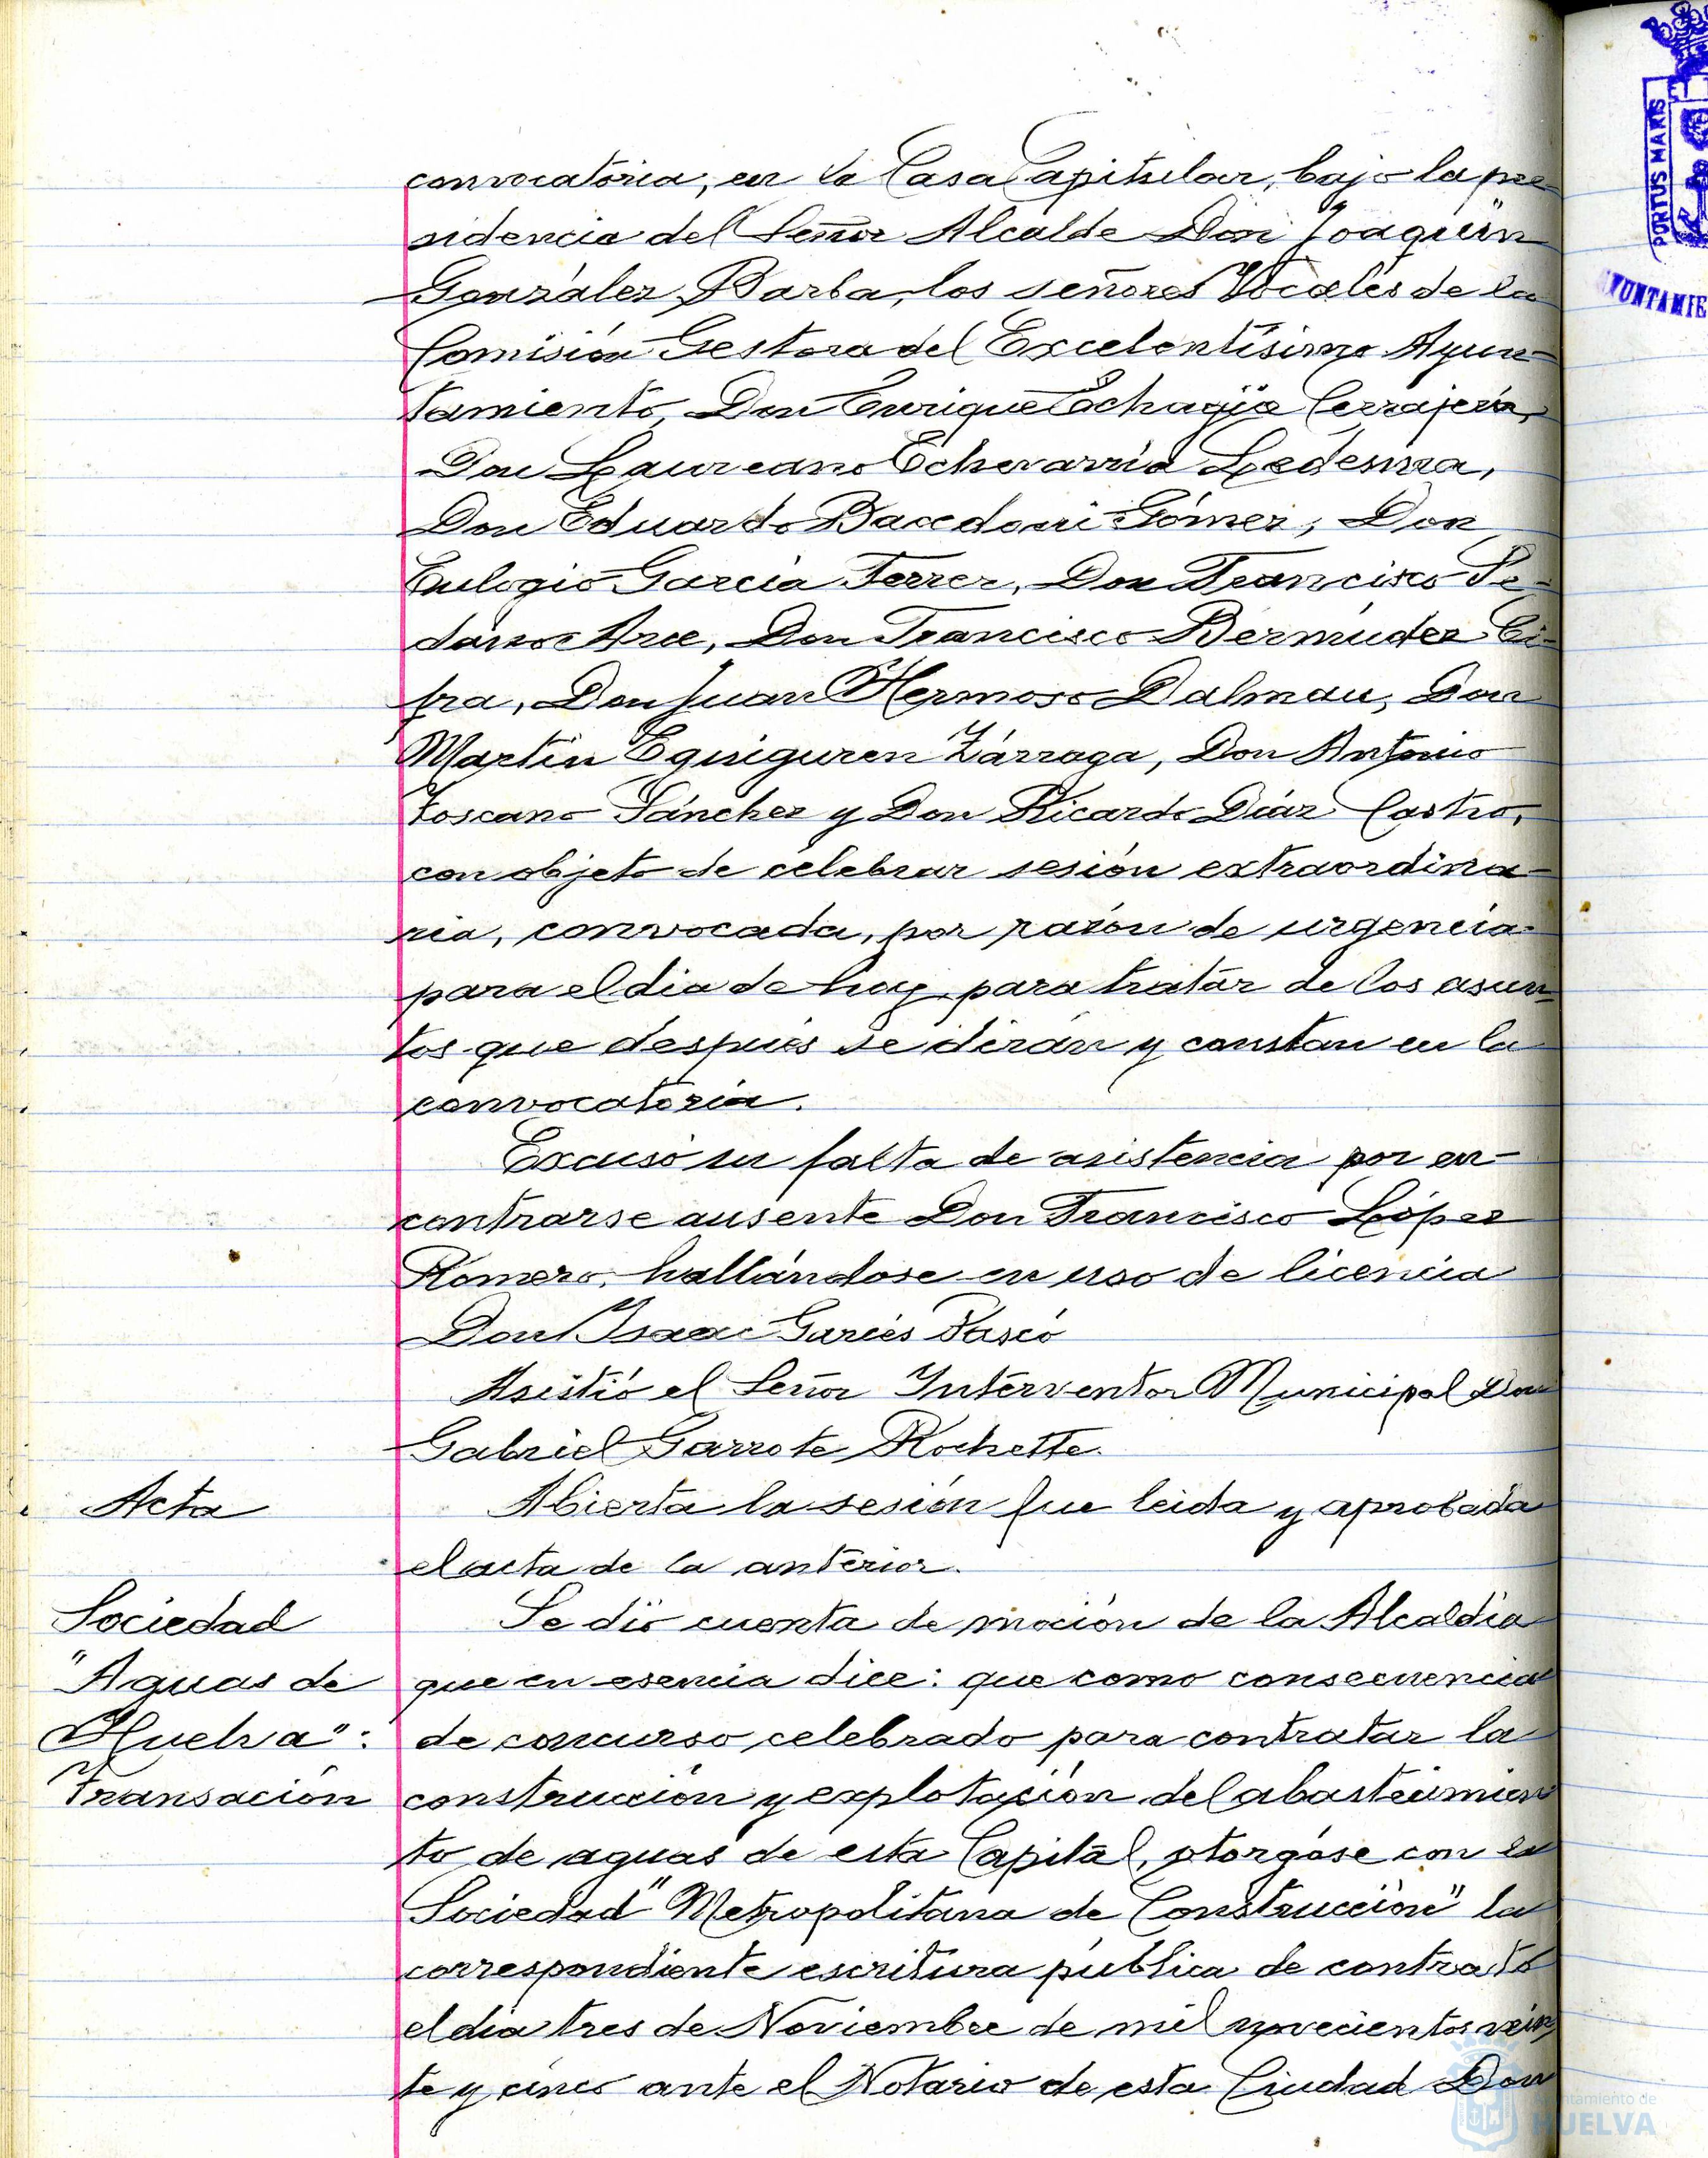 convocatoria, en la Casa Capitular, bajo la pre-
sidencia del Señor Alcalde Don Joaquín
González Barba, los señores Vocales de la
Comisión Gestora del Excelentísimo Ayun-
tamiento, Don Enrique Echagüe Cerrajería,
Don Laureano Echevarría Ledesma,
Don Eduardo Bacedoni Gómez, Don
Eulogio García Ferrer, Don Francisco
Arce, Don Francisco Bermúdez Ci-
fra, Don Juan Hermoso Dalmau, Don
Martín Eguiguren Zárraga, Don Antonio
Toscano Sánchez y Don Ricardo Díaz Castro,
con objeto de celebrar sesión extraordina-
ria, convocada, por razón de urgencia
para el dia de hoy, para tratar de los asun-
tos que después se dirán y constan en la
convocatoria.
Excusó su falta de asistencia por en-
contrarse ausente Don Francisco López
Romero, hallándose en uso de licencia
Don Isaac Garcés
Asistió el Señor Interventor Municipal Don
Gabriel Garrote Rochette.
Acta
Abierta la sesión fue leida y aprobada
el acta de la anterior.
Sociedad
"Aguas de
Huelva":
Transación
Se dió cuenta de moción de la Alcaldia
que en esencia dice: que como consecuencia
de concurso celebrado para contratar la
construcción y explotación del abastecimien
to de aguas de esta Capital, otorgóse con la
Sociedad "Metropolitana de Construcción" la
correspondiente escritura pública de contrato
el dia tres de Noviembre de mil novecientos vein
te y cinco ante el Notario de esta Ciudad Don
PORTUS MARIS
Ayuntamiento de
HUELVA